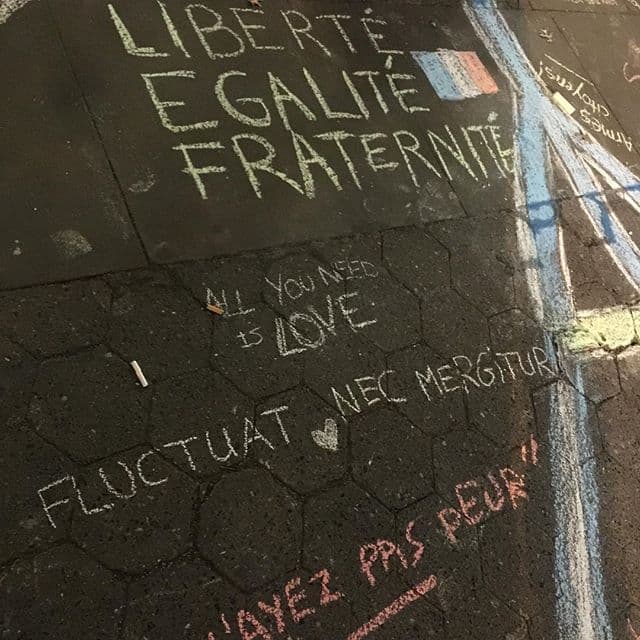 LIBERTÉ
EGALITÉ
FRATERNITÉ
Armes
citoyens!
ALL YOU NEED
IS LOVE
FLUCTUAT NEC MERGITUR
'AYEZ PAS PEUR"